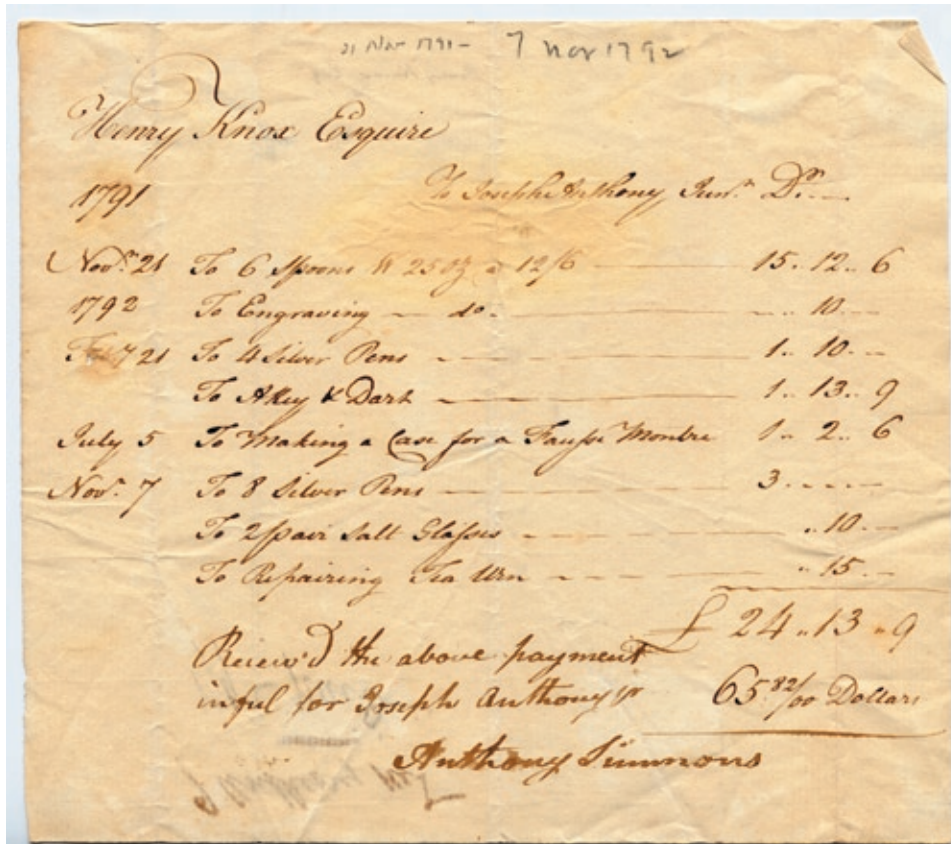 21 Nov 1791 - 7 Nov 1792
Henry Knox Esquire
1791 To Joseph Anthony Junr. Dr.
Novr. 21 To 6 Spoons Wt 25 oz a 12/6 15.. 12.. 6
1792 To Engraving do. 10
21 To 4 Silver Pens 1.. 10
To A Key & Dart 1.. 13.. 9
July 5 To Making a Case for a Fausse Montre 1.. 2.. 6
Novr. 7 To 8 Silver Pens 3
To 2 pair Salt Glasses 10
To Repairing Tea Urn 15
£ 24.. 13.. 9
Receiv'd the above payment
in ful for Joseph Anthony Jr 65 82/100 Dollars
Anthony Simmons